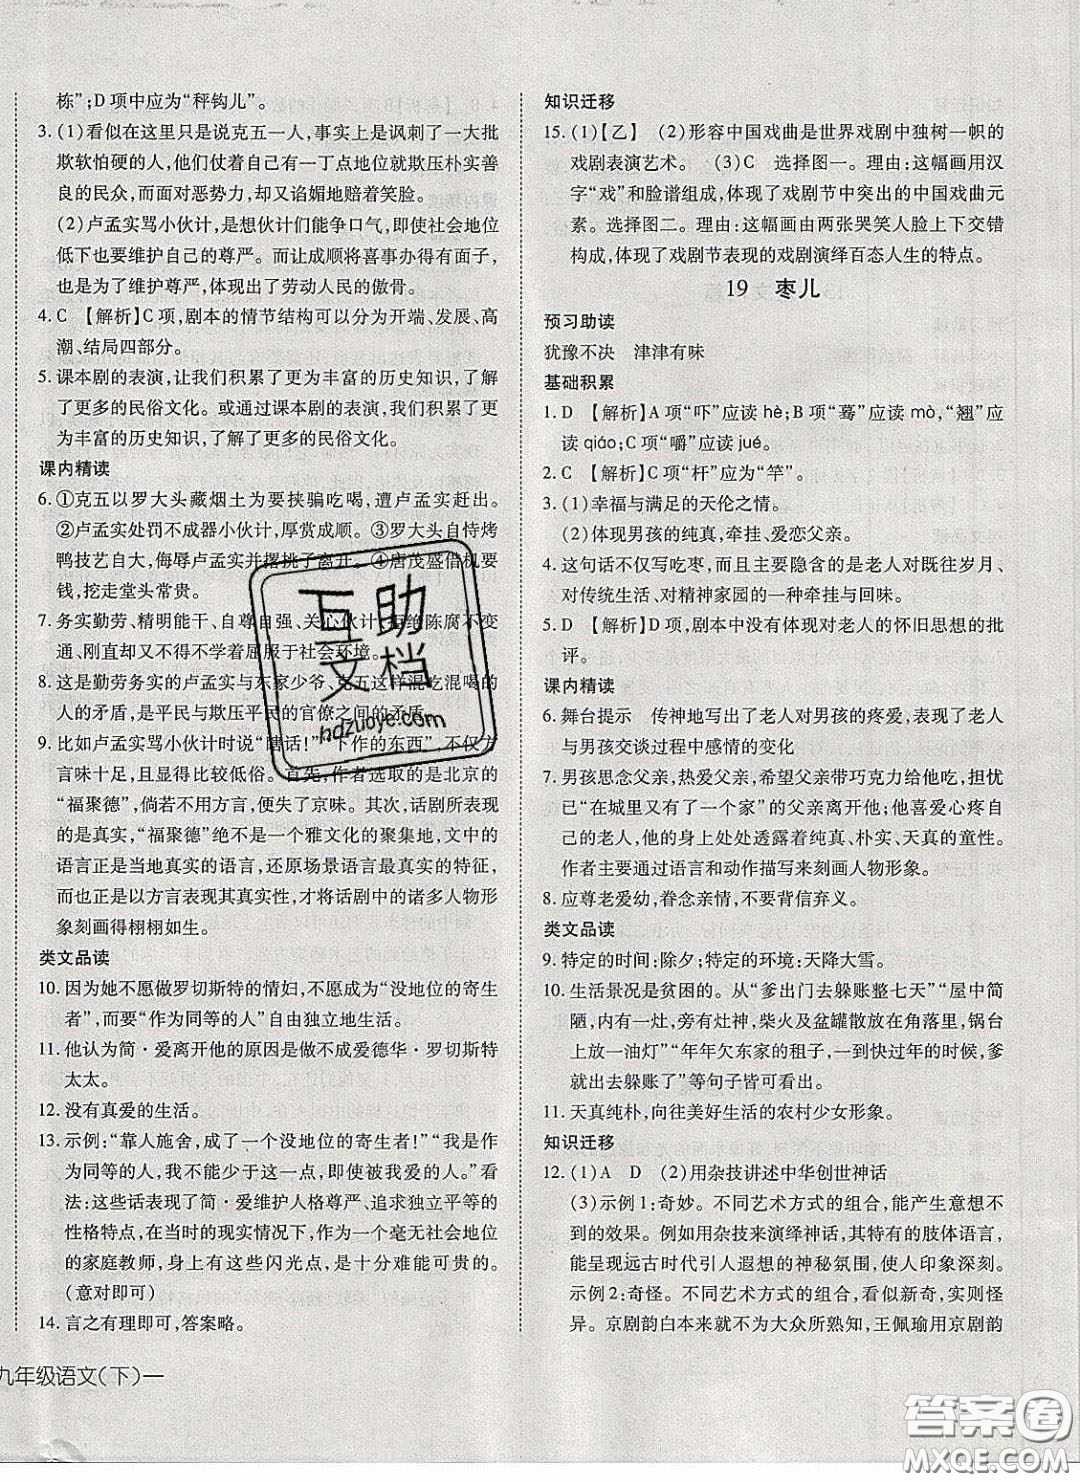 栋”;D 项中应为“秤钩儿”。
3. (1)看似在这里只是说克五一人,事实上是讽刺了一大批
欺软怕硬的人,他们仗着自己有一丁点地位就欺压朴实善
良的民众,而面对恶势力,却又谄媚地赔着笑脸。
(2)卢孟实骂小伙计,是想伙计们能争口气,即使社会地位
低下也要维护自己的尊严。而让成顺将喜事办得有面子,
也是为了维护尊严,体现出了劳动人民的傲骨。
4. C 【解析】C项,剧本的情节结构可以分为开端、发展、高
潮、结局四部分。
5. 课本剧的表演,让我们积累了更为丰富的历史知识,了解
了更多的民俗文化。或通过课本剧的表演,我们积累了更
为丰富的历史知识,了解了更多的民俗文化。
课内精读
6. ①克五以罗大头藏烟土为要挟骗吃喝,遭卢孟实赶出。
②卢孟实处罚不成器小伙计,厚赏成顺。③罗大头自恃烤
鸭技艺自大,侮辱卢孟实并撂挑子离开。④唐茂盛借机要
钱,挖走堂头常贵。
7. 务实勤劳、精明能干、自尊自强、关心伙计、拒绝陈腐不变
通、刚直却又不得不学着屈服于社会环境。
8. 这是勤劳务实的卢孟实与东家少爷、克五这样混吃混喝的
人的矛盾,是平民与欺压平民的官僚之间的矛盾。
9. 比如卢孟实骂小伙计时说“瞎话!”“下作的东西”,不仅方
言味十足,且显得比较低俗。首先,作者选取的是北京的
“福聚德”,倘若不用方言,便失去了京味。其次,话剧所表现
的是真实,“福聚德”绝不是一个雅文化的聚集地,文中的
语言正是当地真实的语言,还原场景语言最真实的特征,
而且也是以方言表现真实性,才将话剧中的诸多人物形
象刻画得栩栩如生。
类文品读
10. 因为她不愿做罗切斯特的情妇,不愿成为“没地位的寄生
者”,而要“作为同等的人”自由独立地生活。
11. 他认为简·爱离开他的原因是做不成爱德华·罗切斯特
太太。
12. 没有真爱的生活。
13. 示例:“靠人施舍,成了一个没地位的寄生者!”“我是作
为同等的人,我不能少于这一点,即使被我爱的人。”看
法:这些话表现了简·爱维护人格尊严、追求独立平等的
性格特点,在当时的现实情况下,作为一个毫无社会地位
的家庭教师,身上有这些闪光点,是十分难能可贵的。
(意对即可)
14. 言之有理即可,答案略。
九年级语文(下)—
知识迁移
15. (1)【乙】 (2)形容中国戏曲是世界戏剧中独树一帜的
戏剧表演艺术。 (3)C 选择图一。理由:这幅画用汉
字“戏”和脸谱组成,体现了戏剧节中突出的中国戏曲元
素。选择图二。理由:这幅画由两张哭笑人脸上下交错
构成,体现了戏剧节表现的戏剧演绎百态人生的特点。
19 枣儿
预习助读
犹豫不决 津津有味
基础积累
1. D 【解析】A 项“吓”应读 hè;B 项“蓦”应读 mò,“翘”应
读 qiáo;C 项“嚼”应读 jué。
2. C 【解析】C项“杆”应为“竿”。
3. (1)幸福与满足的天伦之情。
(2)体现男孩的纯真,牵挂、爱恋父亲。
4. 这句话不仅写吃枣,而且主要隐含的是老人对既往岁月、
对传统生活、对精神家园的一种牵挂与回味。
5. D 【解析】D项,剧本中没有体现对老人的怀旧思想的批
评。
课内精读
6. 舞台提示 传神地写出了老人对男孩的疼爱,表现了老人
与男孩交谈过程中感情的变化
7. 男孩思念父亲,热爱父亲,希望父亲带巧克力给他吃,担忧
已“在城里又有了一个家”的父亲离开他;他喜爱心疼自
己的老人,他的身上处处透露着纯真、朴实、天真的童性。
作者主要通过语言和动作描写来刻画人物形象。
8. 应尊老爱幼,眷念亲情,不要背信弃义。
类文品读
9. 特定的时间:除夕;特定的环境:天降大雪。
10. 生活景况是贫困的。从“爹出门去躲账整七天”“屋中简
陋,内有一灶,旁有灶神,柴火及盆罐散放在角落里,锅台
上放一油灯”“年年欠东家的租子,一到快过年的时候,爹
就出去躲账了”等句子皆可看出。
11. 天真纯朴,向往美好生活的农村少女形象。
知识迁移
12. (1)A D (2)用杂技讲述中华创世神话
(3)示例1:奇妙。不同艺术方式的组合,能产生意想不
到的效果。例如用杂技来演绎神话,其特有的肢体语言,
能呈现远古时代引人遐想的神秘氛围,使人印象深刻。
示例2:奇怪。不同艺术方式的组合,看似新奇,实则怪
异。京剧韵白本来就不为大众所熟知,王佩瑜用京剧韵
互助
文档
hdzuoye.com
答案圈
MXQE.COM